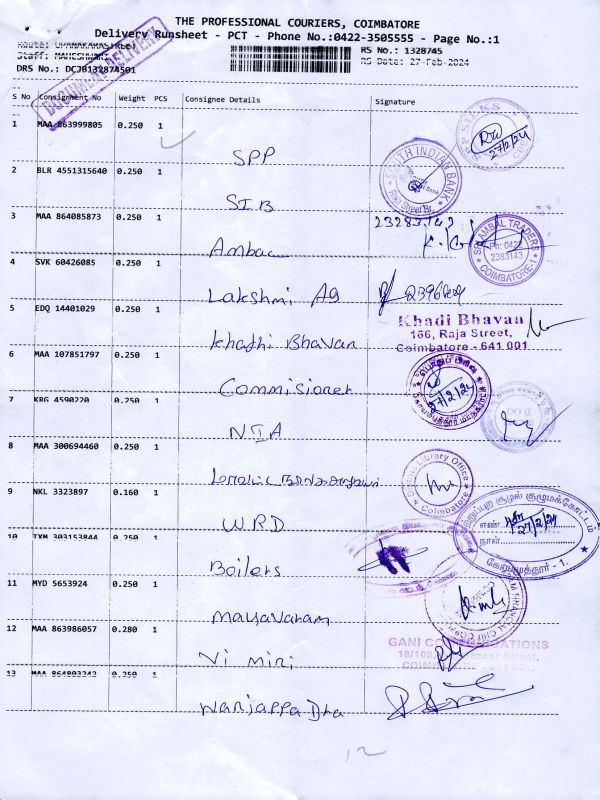 THE PROFESSIONAL COURIERS, COIMBATORE
Delivery Runsheet - PCT - Phone No.:0422-3505555 - Page No.:1
Route:
Staff: MAHESHWARI
DRS No.: DCJB132874501
RS No.: 1328745
RS Date: 27-Feb-2024
DOCUMENT DELIVERY
S No Consignment No Weight PCS Consignee Details Signature
1 MAA 863999805 0.250 1
SPP
27/2/24
2 BLR 4551315640 0.250 1
SIB
SOUTH INDIAN BANK
3 MAA 864085873 0.250 1
Ambac
SRI AMBAL TRADERS
Ph: 0422
2383143
COIMBATORE-1
4 SVK 60426085 0.250 1
Lakshmi Ag
5 EDQ 14401029 0.250 1
Khathi Bhavan
Khadi Bhavan
166, Raja Street,
Coimbatore - 641 001
6 MAA 107851797 0.250 1
Commisioner
27/2/24
7 KRG 4590220 0.250 1
NIA
8 MAA 300694460 0.250 1
Library Office
Coimbatore
9 NKL 3323897 0.160 1
WRD
எண்.
நாள்
27/2/24
10 TXM 303153844 0.250 1
Boilers
11 MYD 5653924 0.250 1
Mayavaram
12 MAA 863986057 0.280 1
Vi Miri
GANI
13 MAA 864803242 0.250 1
Nanjappa Dha
12